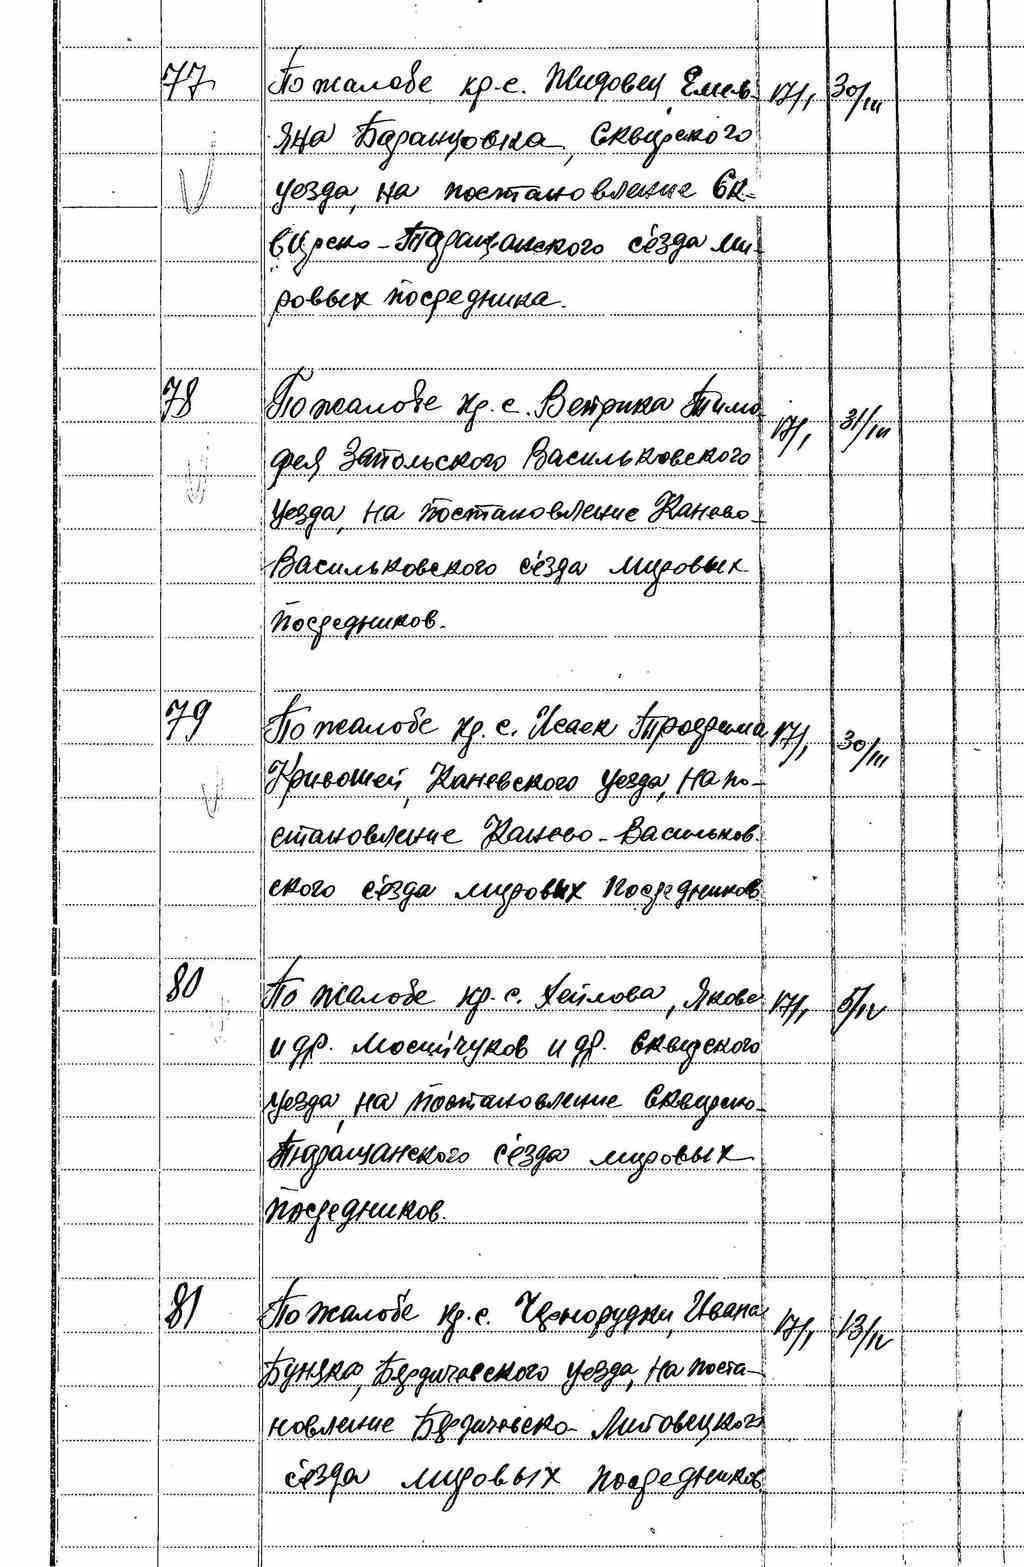 77 По жалобе кр. с. Жидовец Емель- 17/I 30/III
яна Баранцовка, Сквирского
уезда, на постановление Ск-
вирско-Таращанского сѐзда ми-
ровых посредника.
78 По жалобе кр. с. Ветрика Тимо- 17/I 31/III
фея Запольского Васильковского
уезда, на постановление Канево-
Васильковского сѐзда мировых
посредников.
79 По жалобе кр. с. Исаек Трофима 17/I 30/III
Кривошей, Каневского уезда, на по-
становление Канево-Васильков-
ского сѐзда мировых посредников
80 По жалобе кр. с. Хейлова, Якова 17/I 5/IV
и др. Мосийчуков и др. Сквирского
уезда, на постановление Сквирско-
Таращанского сѐзда мировых
посредников.
81 По жалобе кр. с. Чернорудки, Ивана 17/I 13/IV
Буняка, Бердичевского уезда, на поста-
новление Бердичевско-Липовецкого
сѐзда мировых посредников